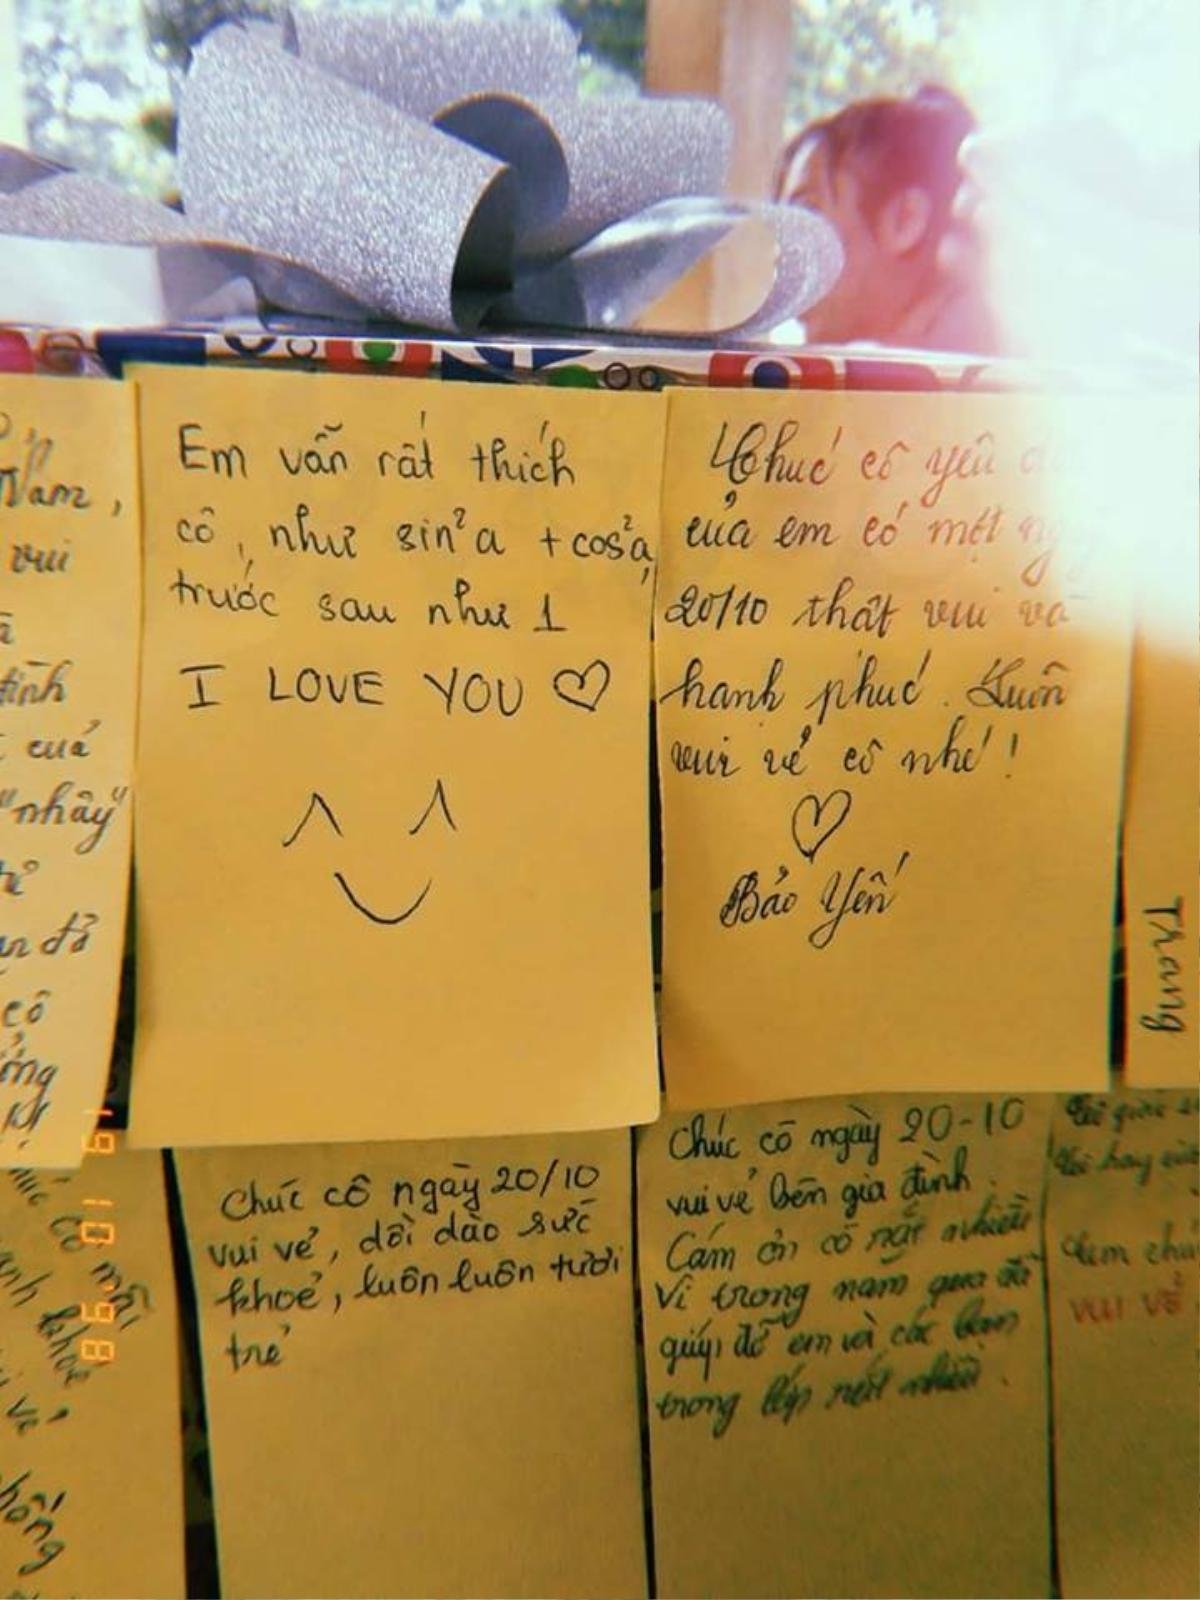 Nam,
vui
đình
cuả
"nhây"
đỏ
cô
Em vẫn rất thích
cô, như sin²a + cos²a,
trước sau như 1
I LOVE YOU ♡
Chúc cô yêu
của em có một
20/10 thật vui và
hạnh phúc. Luôn
vui vẻ cô nhé!
♡
Bảo Yến
Thang
Chúc cô ngày 20/10
vui vẻ, dồi dào sức
khoẻ, luôn luôn tươi
trẻ
Chúc cô ngày 20-10
vui vẻ bên gia đình.
Cám ơn cô rất nhiều
Vì trong năm qua đã
giúp đỡ em và các bạn
trong lớp rất nhiều.
vui vẻ
19 10 '98